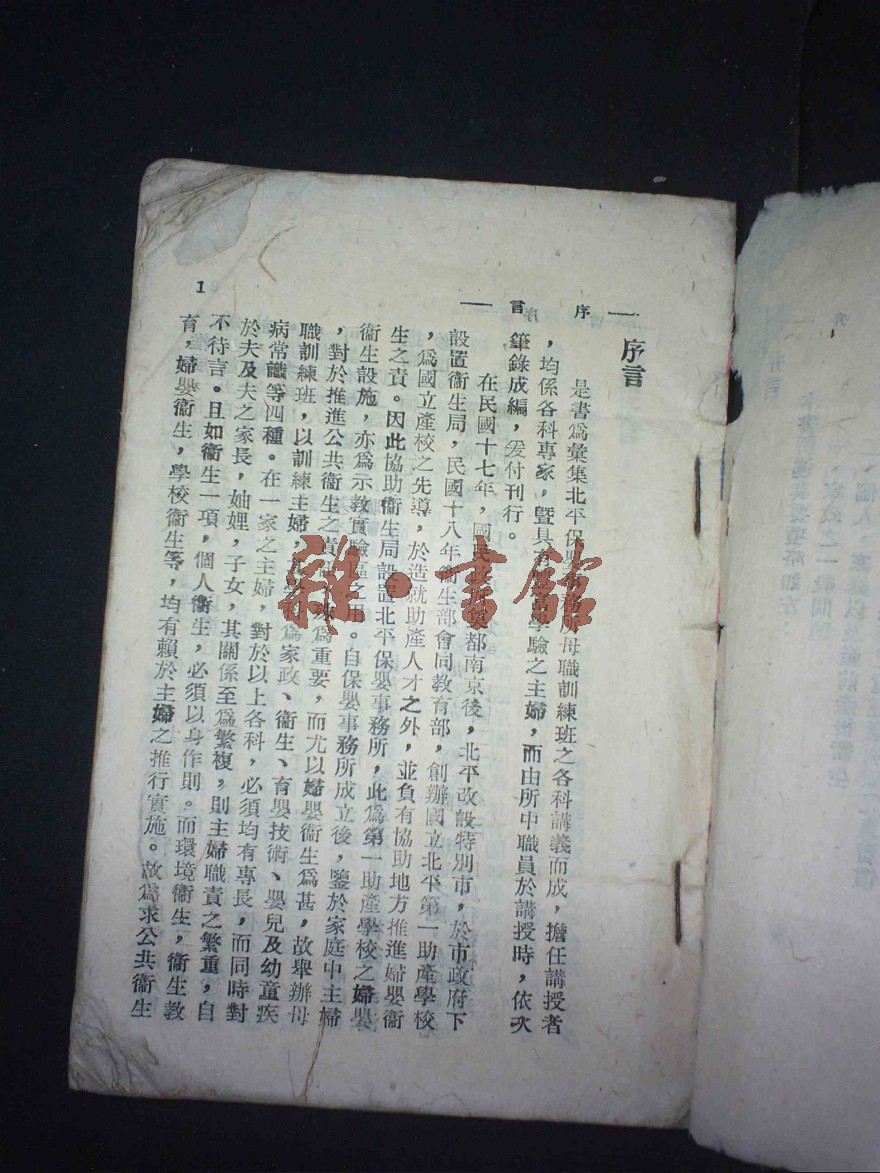 序言
1
序言
是書爲彙集北平保嬰事務所母職訓練班之各科講義而成，擔任講授者
，均係各科專家，暨具有豐富學驗之主婦，而由所中職員於講授時，依次
筆錄成編，爰付刊行。
在民國十七年，國民政府奠都南京後，北平改設特別市，於市政府下
設置衞生局，民國十八年衞生部會同教育部，創辦國立北平第一助產學校
，爲國立產校之先導，於造就助產人才之外，並負有協助地方推進婦嬰衞
生之責。因此協助衞生局設置北平保嬰事務所，此爲第一助產學校之婦嬰
衞生設施，亦爲示教實驗區之用。自保嬰事務所成立後，鑒於家庭中主婦
，對於推進公共衞生之責任 爲重要，而尤以婦嬰衞生爲甚，故舉辦母
職訓練班，以訓練主婦， 爲家政、衞生、育嬰技術、嬰兒及幼童疾
病常識等四種。在一家之主婦，對於以上各科，必須均有專長，而同時對
於夫及夫之家長，妯娌，子女，其關係至爲繁複，則主婦職責之繁重，自
不待言。且如衞生一項，個人衞生，必須以身作則。而環境衞生，衞生教
育，婦嬰衞生，學校衞生等，均有賴於主婦之推行實施。故爲求公共衞生
雜·書館